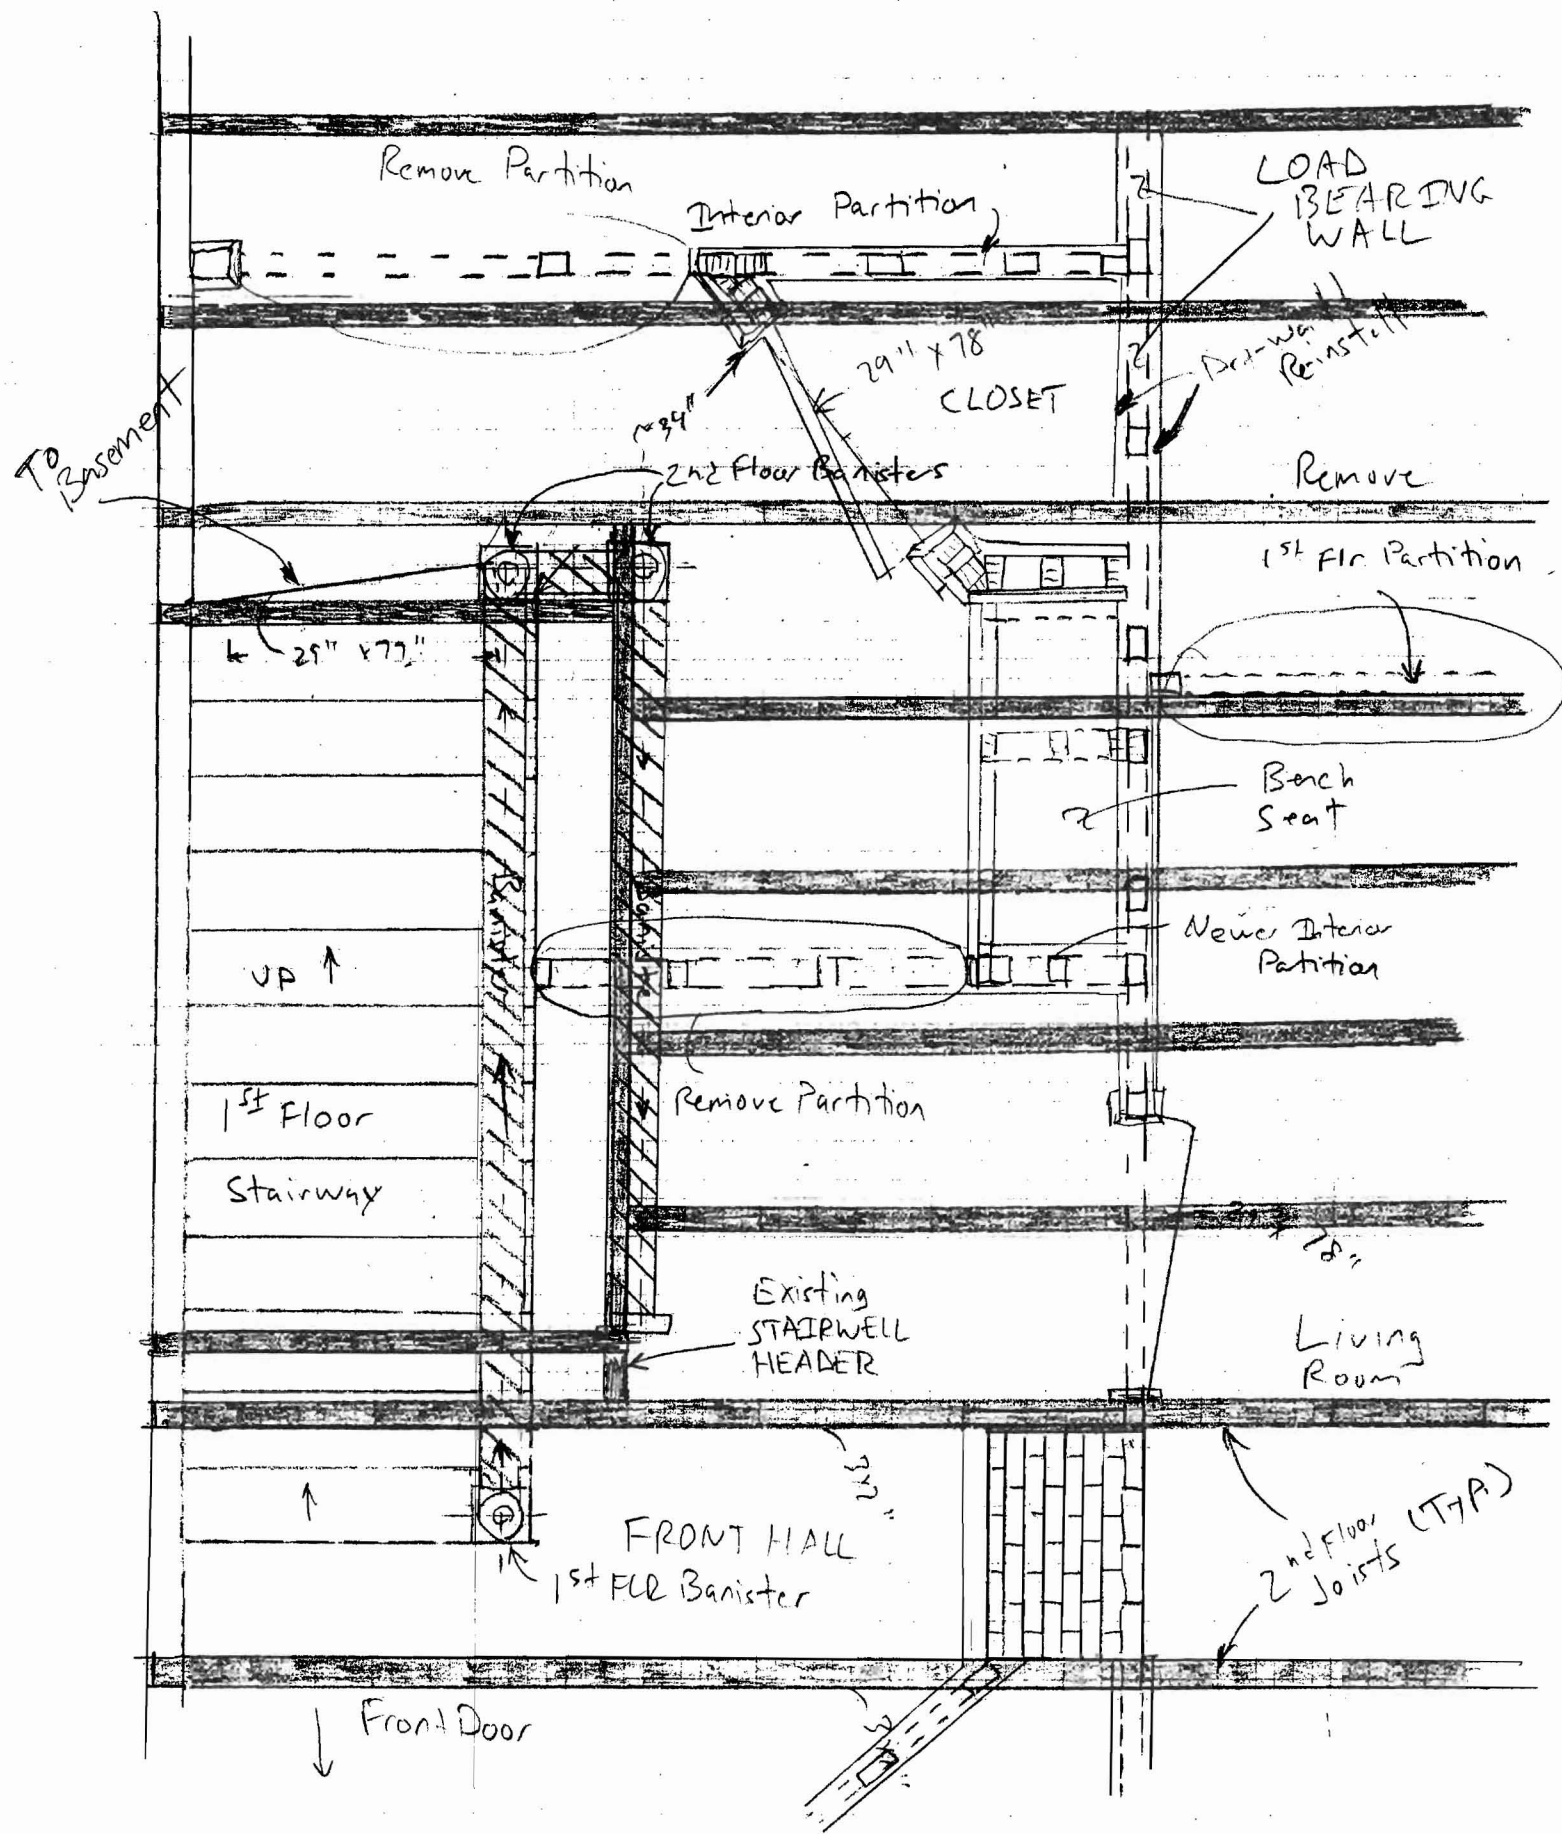 Remove Partition
Interior Partition
LOAD
BEARING
WALL
Reinstall
29" x 78"
CLOSET
~34"
TO
Basement
2nd Floor Banisters
Remove
1st Flr Partition
Bench
Seat
Banister
Banister
Newer Interior
Partition
UP
Remove Partition
1st Floor
Stairway
Existing
STAIRWELL
HEADER
Living
Room
FRONT HALL
1st FLR Banister
2nd Floor
Joists (TYP)
Front Door